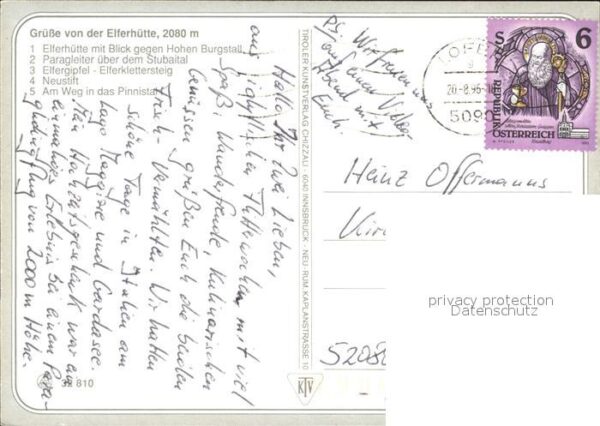 Grüße von der Elferhütte, 2080 m
1 Elferhütte mit Blick gegen Hohen Burgstall
2 Paragleiter über dem Stubaital
3 Elfergipfel - Elferklettersteig
4 Neustift
5 Am Weg in das Pinnistal
Hallo, Ihr zwei Lieben,
aus idyllischen Flitterwochen mit viel
Spaß, Wanderfreude, kulinarischen
Genüssen grüßen Euch die
Frisch-Vermählten. Wir hatten
schöne Tage in Italien am
Lago Maggiore und Gardasee.
Hochzeitsgeschenk war ein
einmaliges Erlebnis bei einem Para-
flug von 2000 m Höhe.
PS: Wir freuen uns
auf einen
Abend mit
Euch.
32 810
TIROLER KUNSTVERLAG CHIZZALI · 6040 INNSBRUCK - NEU - RUM, KAPLANSTRASSE 10
KTV
LOFER
5090
S 6
REPUBLIK
ÖSTERREICH
Heinz Offermanns
5208
privacy protection
Datenschutz